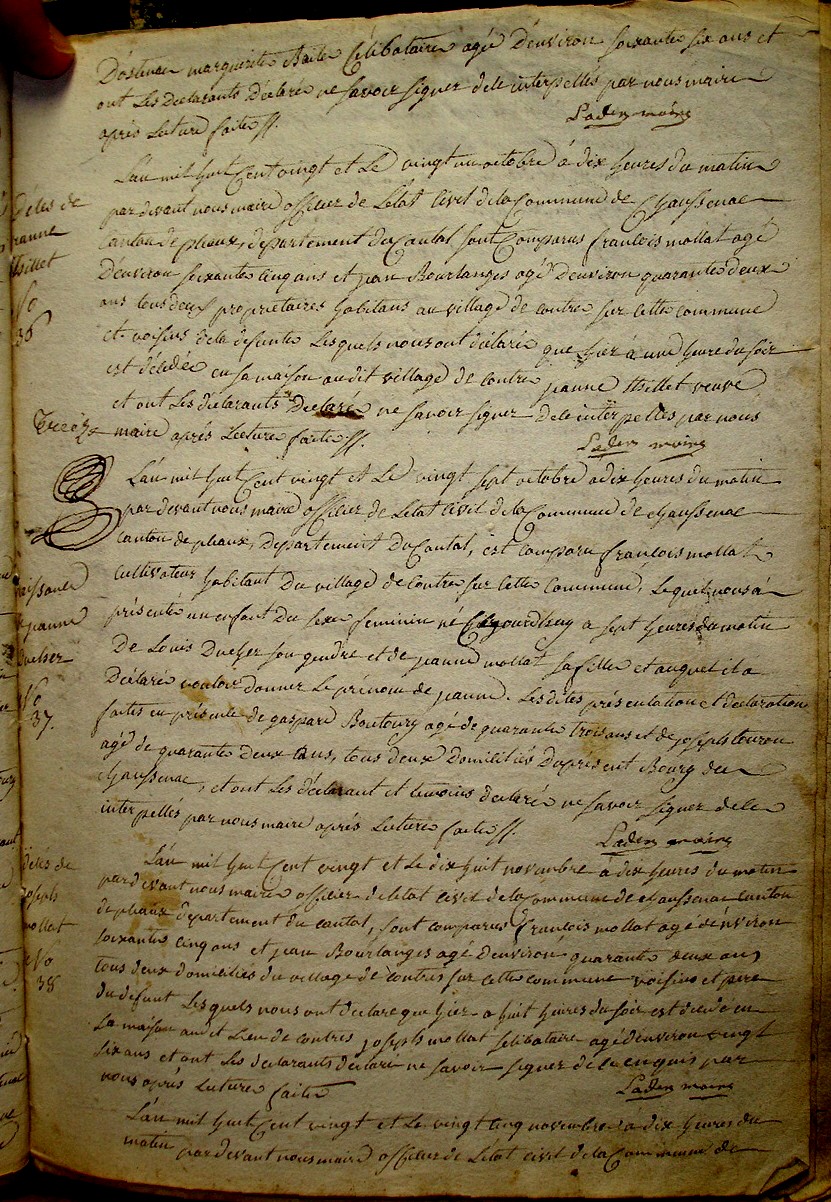 marguerite célibataire agée d'environ soixante six ans et
ont les declarants déclaré ne savoir signer de le interpellés par nous maire
après lecture faite ff.
Laden maire
L'an mil huit cent vingt et le vingt un octobre à dix heures du matin
par devant nous maire officier de l'état civil de la commune de chaussenac
canton de pleaux, departement du cantal sont comparus francois mollat agé
d'environ soixante cinq ans et jean Bourlanges agé d'environ quarante deux
ans tous deux propriétaires habitans au village de contre sur cette commune
et voisins de la defunte lesquels nous ont déclaré que hier à une heure du soir
est décédée en sa maison audit village de contre jeanne veuve
et ont les déclarants déclaré ne savoir signer de le interpellés par nous
maire après lecture faite ff.
Laden maire
décès de
jeanne
No
36
L'an mil huit cent vingt et le vingt sept octobre a dix heures du matin
par devant nous maire officier de l'etat civil de la commune de chaussenac
canton de pleaux, departement du cantal, est comparu francois mollat
cultivateur habitant du village de contre sur cette commune, lequel nous a
présenté un enfant du sexe feminin né aujourdhuy a sept heures du matin
de Louis Ducher son gendre et de jeanne mollat sa fille et auquel il a
déclaré vouloir donner le prénom de jeanne. Les dites présentation et declaration
faites en présence de gaspard Boutoury agé de quarante trois ans et de joseph touron
agé de quarante deux ans, tous deux domiciliés du présent Bourg de
chaussenac, et ont les déclarant et temoins declaré ne savoir signer de le
interpellés par nous maire après lecture faite ff.
Laden maire
naissance
de jeanne
Ducher
No
37.
L'an mil huit cent vingt et le dix huit novembre à dix heures du matin
par devant nous maire officier de l'etat civil de la commune de chaussenac canton
de pleaux departement du cantal, sont comparus françois mollat agé d'environ
soixante cinq ans et jean Bourlanges agé d'environ quarante deux ans
tous deux domiciliés du village de contres sur cette commune voisins et pere
du defunt lesquels nous ont declaré que hier a huit heures du soir est decedé en
sa maison audit lieu de contres joseph mollat célibataire agé d'environ vingt
six ans et ont les declarants declaré ne savoir signer de le enquis par
nous après lecture faite
Laden maire
décès de
joseph
mollat
No
38
L'an mil huit cent vingt et le vingt cinq novembre à dix heures du
matin par devant nous maire officier de l'état civil de la commune de